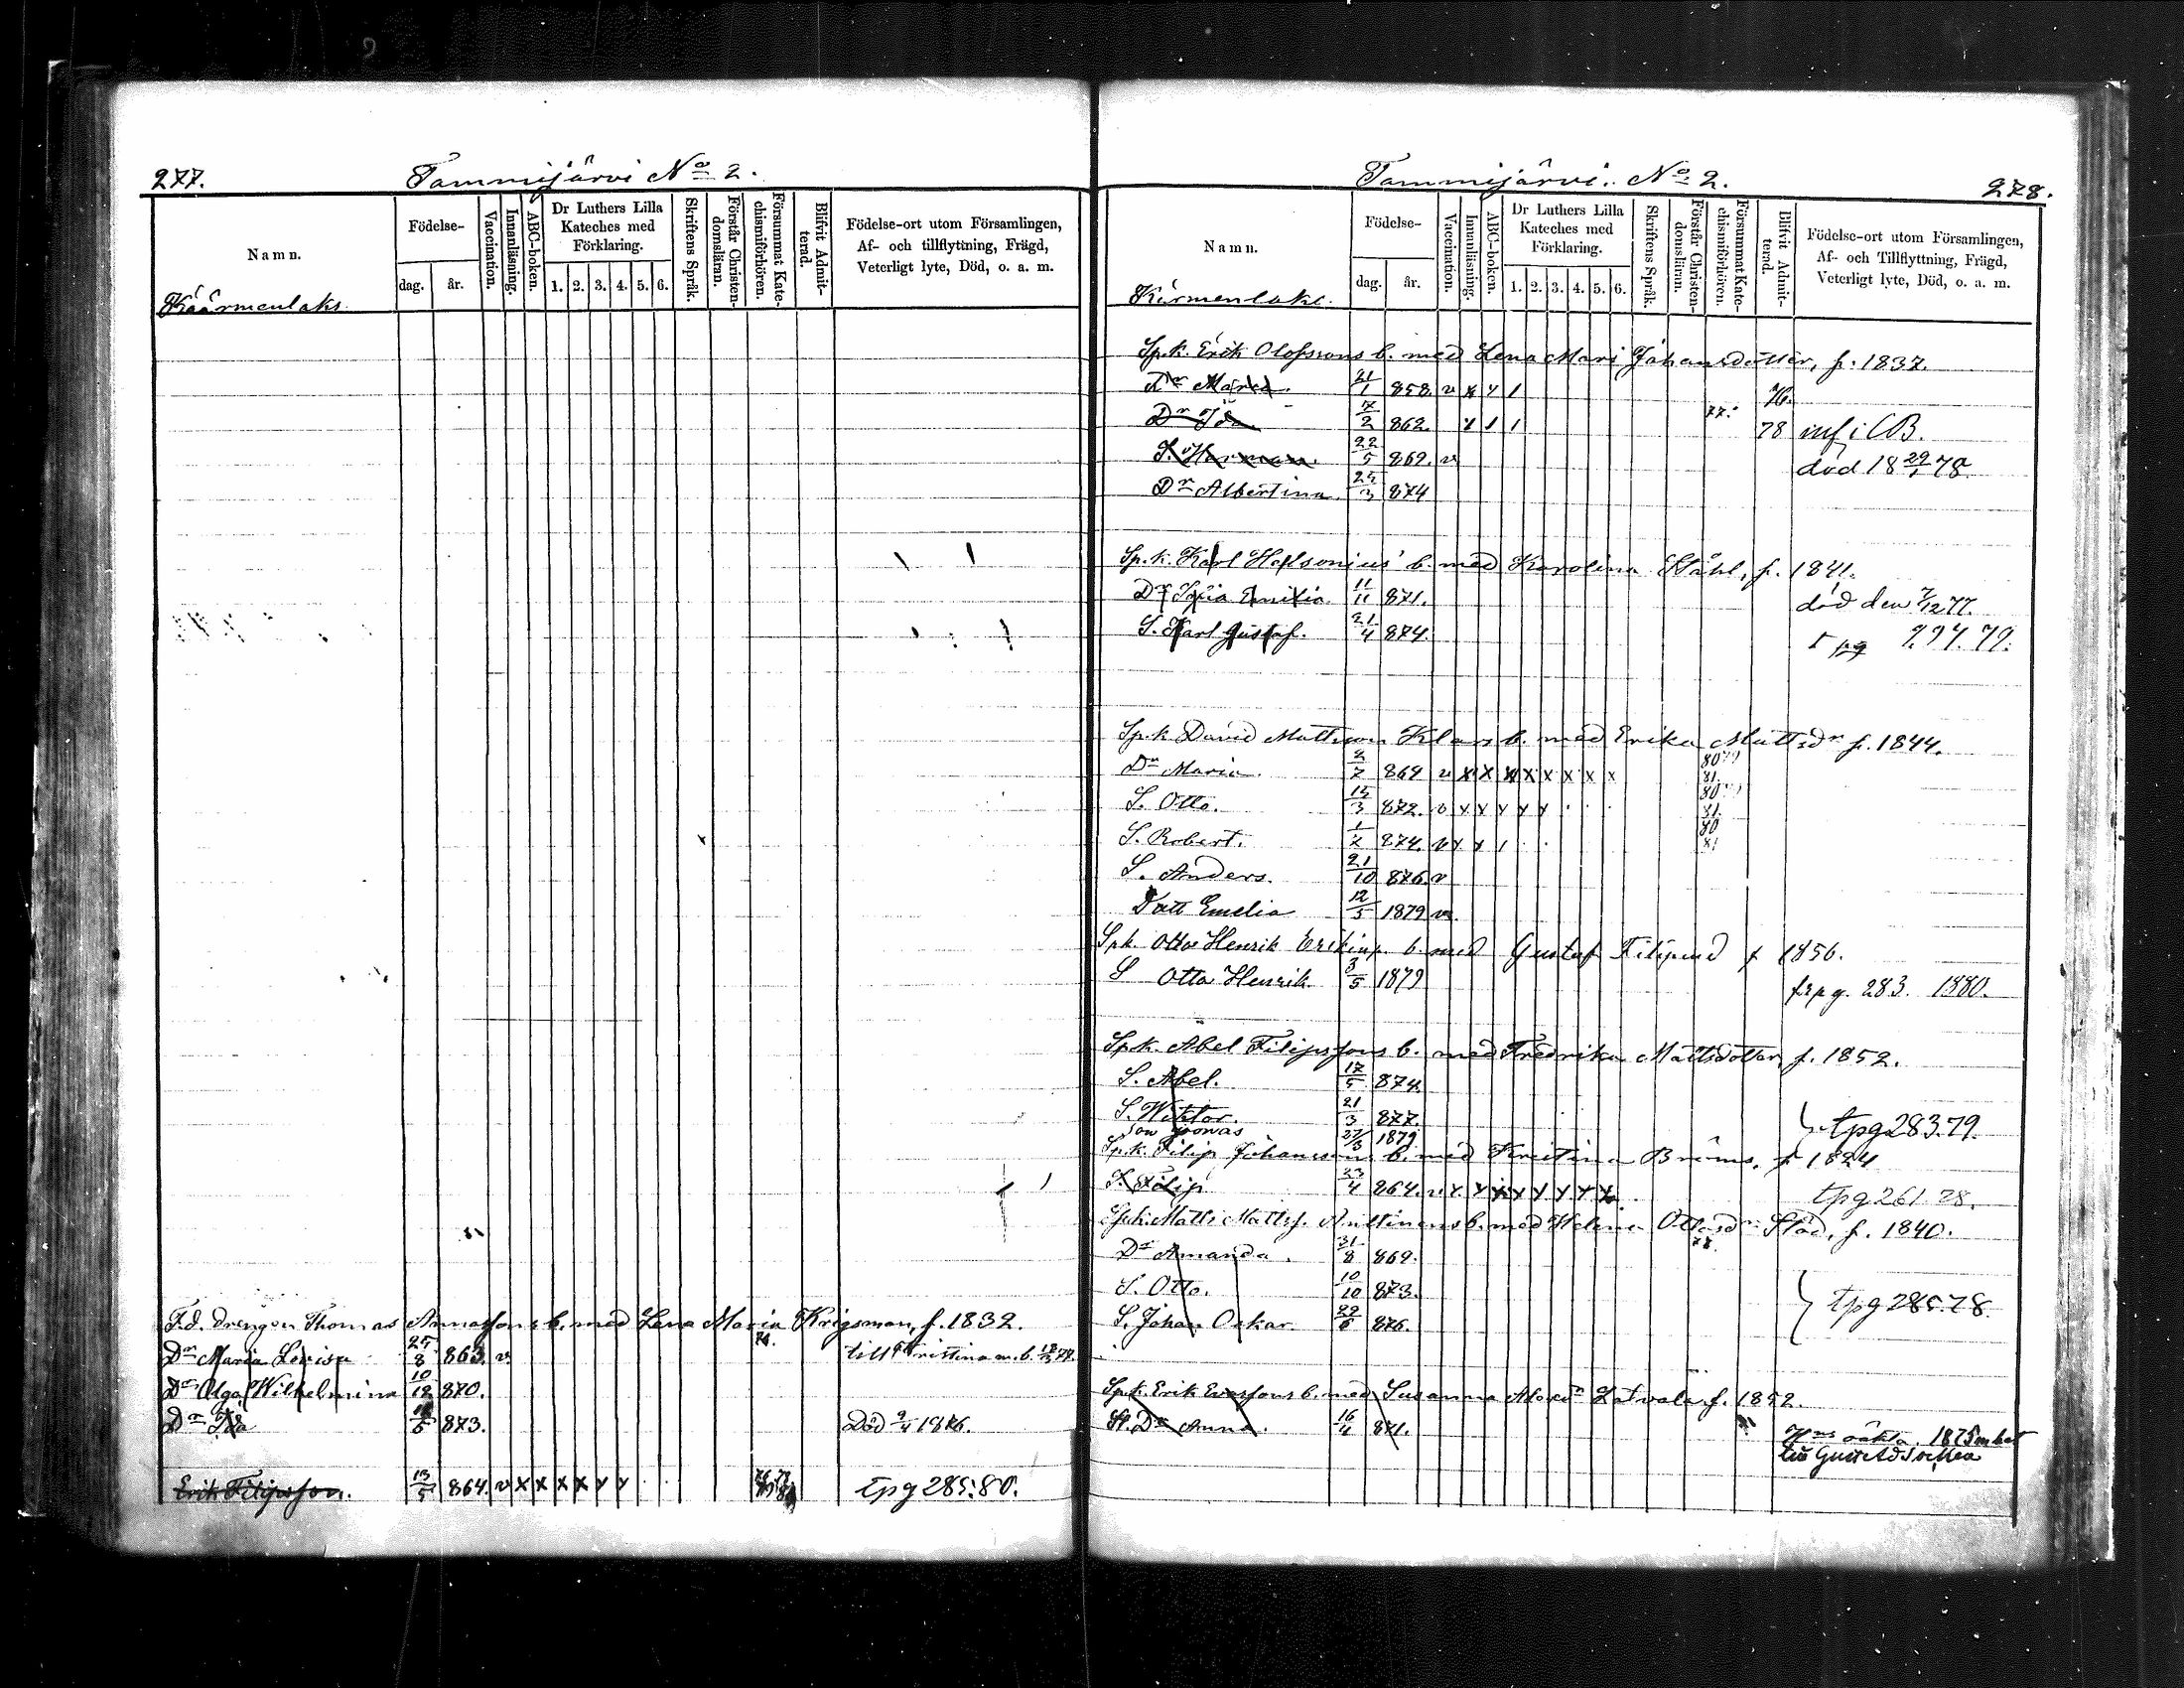 277.
Tammijärvi No 2.
Namn.
Födelse-
dag.
år.
Vaccination.
Innanläsning.
ABC-boken.
Dr Luthers Lilla
Kateches med
Förklaring.
1. 2. 3. 4. 5. 6.
Skriftens Språk.
Förstår Christen-
domsläran.
Försummat Kate-
chismiförhören.
Blifvit Admit-
terad.
Födelse-ort utom Församlingen,
Af- och tillflyttning, Frägd,
Veterligt lyte, Död, o. a. m.
Käärmenlaks.
F.d. drengen Thomas Annassons b. med Lena Maria Krigsman, f. 1832.
Dr Maria Lovisa 25/8 863. v.
Dr Olga Wilhelmina 10/12 870.
Dr Ida 873. Död 9/4 1876.
Erik Filipsson. 13/5 864. v x x x x y y tpg 285. 80.
Tammijärvi. No 2.
278.
Namn.
Födelse-
dag.
år.
Vaccination.
Innanläsning.
ABC-boken.
Dr Luthers Lilla
Kateches med
Förklaring.
1. 2. 3. 4. 5. 6.
Skriftens Språk.
Förstår Christen-
domsläran.
Försummat Kate-
chismiförhören.
Blifvit Admit-
terad.
Födelse-ort utom Församlingen,
Af- och Tillflyttning, Frägd,
Veterligt lyte, Död, o. a. m.
Kärmenlaks.
Sp.k. Erik Olofssons b. med Lena Mari Johansdotter, f. 1837.
Dr Maria. 21/1 858. v x y 1 76.
Dr Ida 7/2 862. 1 1 1 77. 78 inf i CB.
S. Herman. 22/5 869. v död 18 29/1 78.
Dr Albertina. 25/3 874
Sp.k. Karl Helsonius b. med Karolina Ståhl, f. 1841.
Dr Sofia Emilia 11/11 871. död den 7/12 77.
S. Karl Gustaf. 21/4 874.
Sp.k David Mattsson Klars b. med Erika Mattsdr f. 1844.
Dr Maria. 2/7 869 v x x x x x x x x 80 81.
S. Otto. 15/3 872. v y x y y y 80 81.
S. Robert. 1/7 874. v y y 1 80 81
S. Anders. 21/10 876. v
Dott Emelia 12/5 1879 v.
Spk. Otto Henrik b. med Gustaf f 1856.
S Otto Henrik 3/5 1879 frpg. 283. 1880.
Sp.k. Abel Filipssons b. med Fredrika Mattsdotter, f. 1852.
S. Abel. 17/5 874.
S. Wiktor. 21/3 877. tpg 283. 79.
Son Jonas 27/3 1879
Sp.k. Filip Johanssons b. med Kristina f 1824
S. Filip 23/4 864. v y. y x y y y y x tpg 261. 78.
Spk. Matts Mattss. b. med Helena Ottosdr Städ, f. 1840.
Dr Amanda. 31/8 869. 78.
S. Otto. 10/10 873. tpg 285. 78.
S. Johan Oskar. 22/6 876.
Sp.k. Erik b. med Susanna Latvala f. 1852.
Dr Anna. 16/4 871.